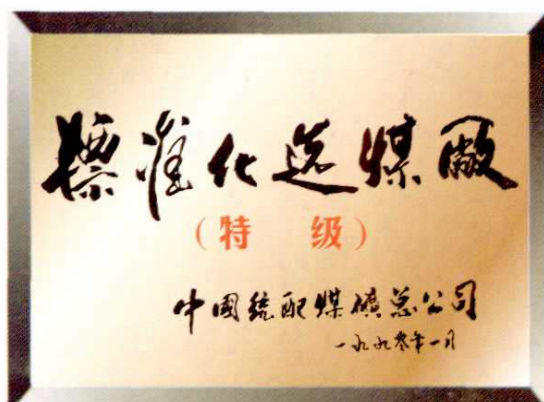 標準化选煤厰
（特 级）
中國统配煤礦总公司
一九九叁年一月